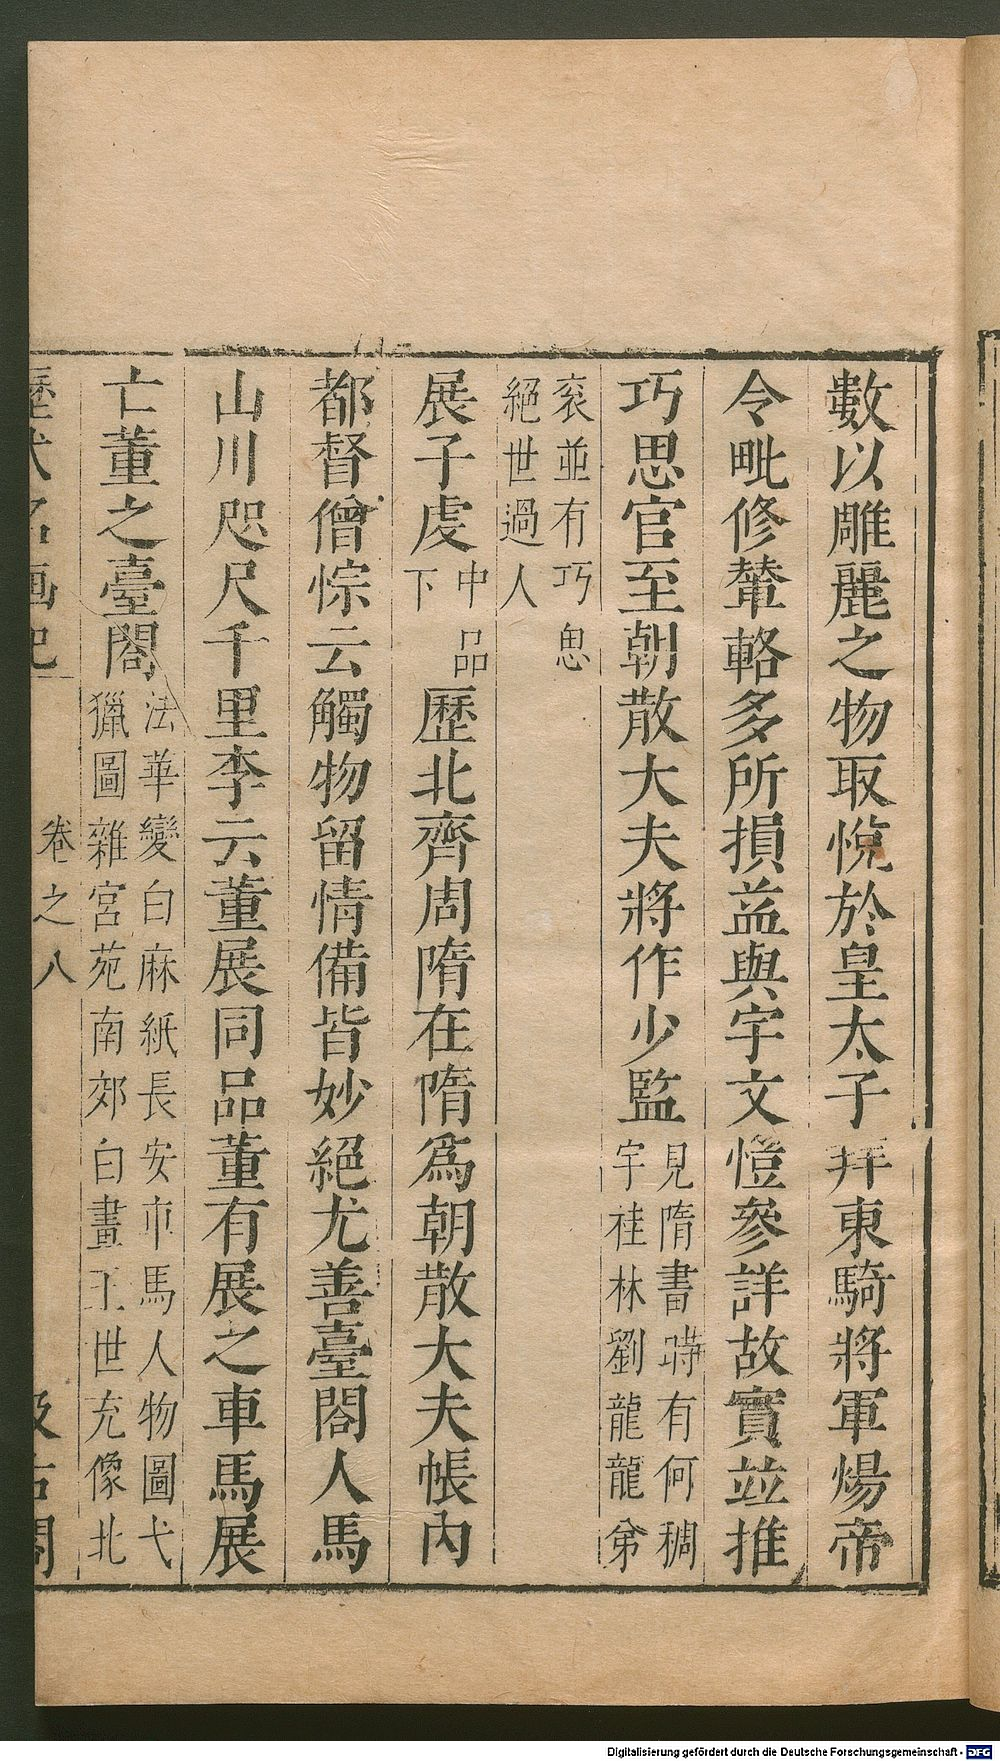 數以雕麗之物取悅於皇太子拜東騎將軍煬帝
令毗修輦輅多所損益與宇文愷參詳故實並推
巧思官至朝散大夫將作少監見隋書時有何稠
宇桂林劉龍龍弟
衮並有巧思
絕世過人
展子虔中品
下歷北齊周隋在隋爲朝散大夫帳內
都督僧悰云觸物留情備皆妙絕尤善臺閣人馬
山川咫尺千里李云董展同品董有展之車馬展
亡董之臺閣法華變白麻紙長安市馬人物圖弋
獵圖雜宮苑南郊白畫王世充像北
歷代名画記 卷之八 汲古閣
Digitalisierung gefördert durch die Deutsche Forschungsgemeinschaft - DFG